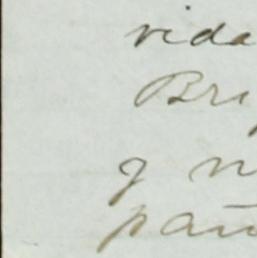 vida
Bri
y n
pañ